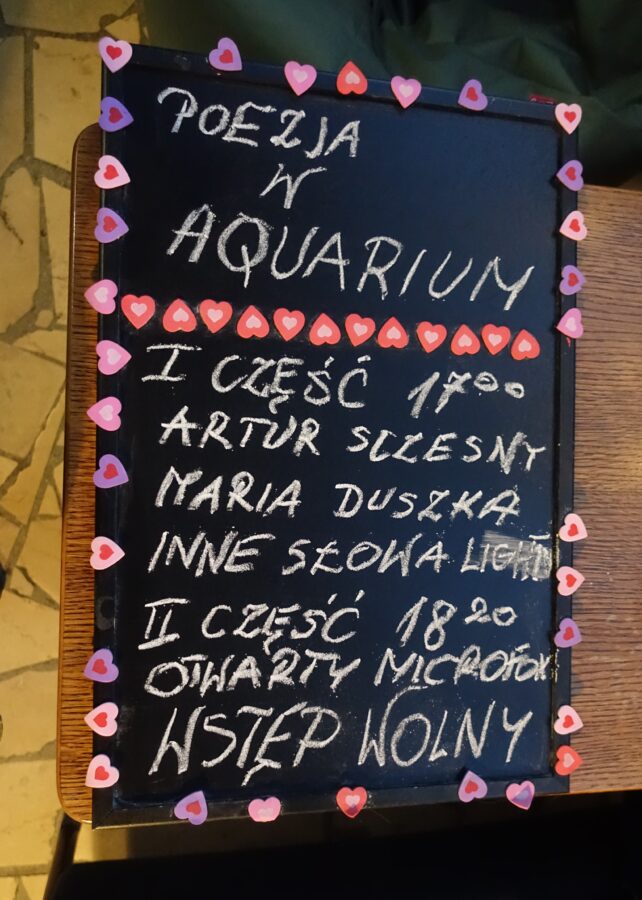 POEZJA
W
AQUARIUM
I CZĘŚĆ 17⁰⁰
ARTUR SCZESNY
MARIA DUSZKA
INNE SŁOWA LIGHT
II CZĘŚĆ 18²⁰
OTWARTY MICROFON
WSTĘP WOLNY